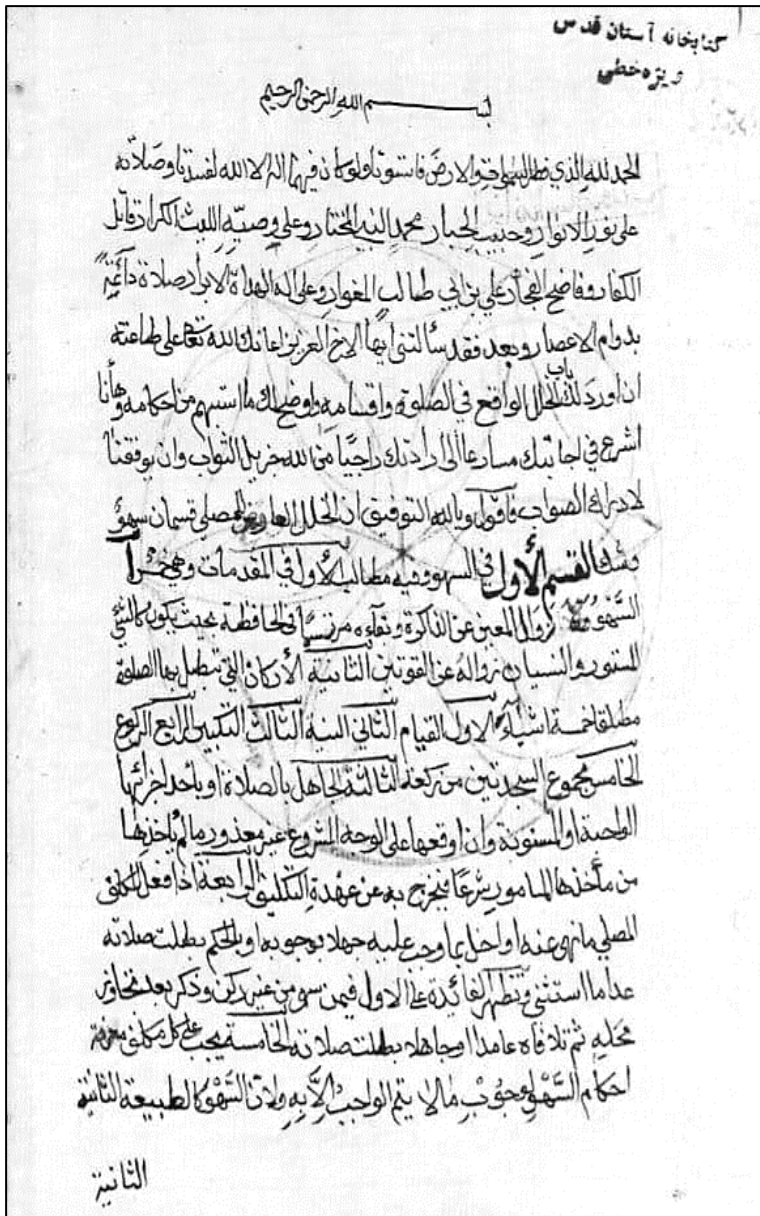 كتابخانه آستان قدس
ويژه خطى
بسم الله الرحمن الرحيم
الحمد لله الذي فطر السموات والارض فاستوتا ولو كان فيهما اله الا الله لفسدتا وصلاته
على نور الانوار وحبيب الجبار محمد النبي المختار وعلى وصيه الليث الكرار قاتل
الكفار وفاضح الفجار علي بن ابي طالب المغوار وعلى اله الهداة الابرار صلاة دائمة
بدوام الاعصار وبعد فقد سألتني ايها الاخ العزيز اعانك الله تعالى على طاعته
ان اورد لك باب الخلل الواقع في الصلوة واقسامه واوضح لك ما استبهم من احكامه وها أنا
اشرع في اجابتك مسارعا الى ارادتك راجيا من الله جزيل الثواب وان يوفقنا
لادراك الصواب فاقول وبالله التوفيق ان الخلل العارض للمصلي قسمان سهو
وشك القسم الأول في السهو وفيه مطالب الأول في المقدمات وهي
السهو زوال المعنى عن الذاكرة وبقاءه مرتسما في الحافظة بحيث يكون كالشئ
المستور والنسيان زواله عن القوتين الثانية الأركان التي تبطل بها الصلوة
مطلقا خمسة اشياء الاول القيام الثاني النية الثالث التكبير الرابع الركوع
الخامس مجموع السجدتين من ركعة الثالثة الجاهل بالصلاة او بأحد اجزائها
الواجبة او المسنونة وان اوقعها على الوجه المشروع غير معذور ما لم يأخذها
من مأخذها المامور شرعا فيخرج به عن عهدة التكليف الرابعة اذا فعل المكلف
المصلي ما نهي عنه او اخل بما وجب عليه جهلا بوجوبه او بالحكم بطلت صلاته
عدا ما استثني وتظهر الفائدة على الاول فيمن سهى من غير ركن وذكر بعد تجاوز
محله ثم تلافاه عامدا او جاهلا بطلت صلاته الخامسة يجب على كل مكلف معرفة
احكام السهو لوجوب ما لا يتم الواجب إلا به ولان السهو كالطبيعة الثانية
الثانية